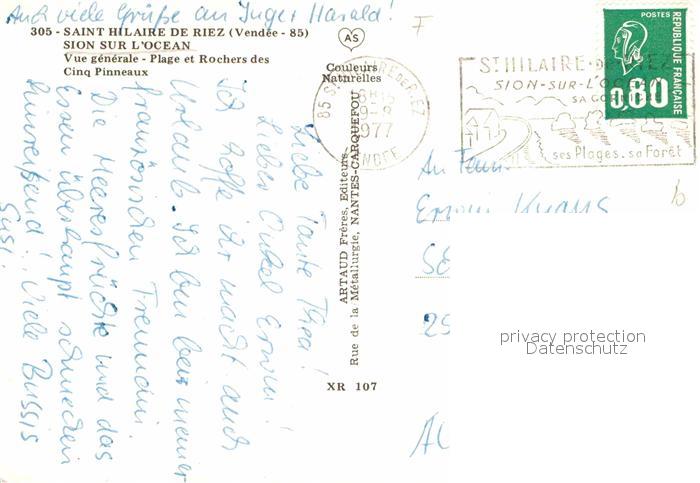 Auch viele Grüße an Inger Harald!
305 - SAINT HILAIRE DE RIEZ (Vendée - 85)
SION SUR L'OCEAN
Vue générale - Plage et Rochers des
Cinq Pinneaux
AS
Couleurs
Naturelles
F
85 ST HILAIRE-DE-RIEZ
1977
VENDEE
ST HILAIRE-DE-RIEZ
SION-SUR-L'OCEAN
ses Plages. sa Forêt
POSTES
REPUBLIQUE FRANÇAISE
0,80
Liebe Tante Thea!
Lieber Onkel Erwin!
Ich hoffe ihr macht auch
Urlaub. Ich bin bei meiner
französischen Freundin.
Die Meeresfrüchte und das
Essen überhaupt schmecken
hinreißend! Viele Bussis
Susi
ARTAUD Frères, Editeurs
Rue de la Métallurgie, NANTES-CARQUEFOU
XR 107
An Fam.
Erwin
privacy protection
Datenschutz